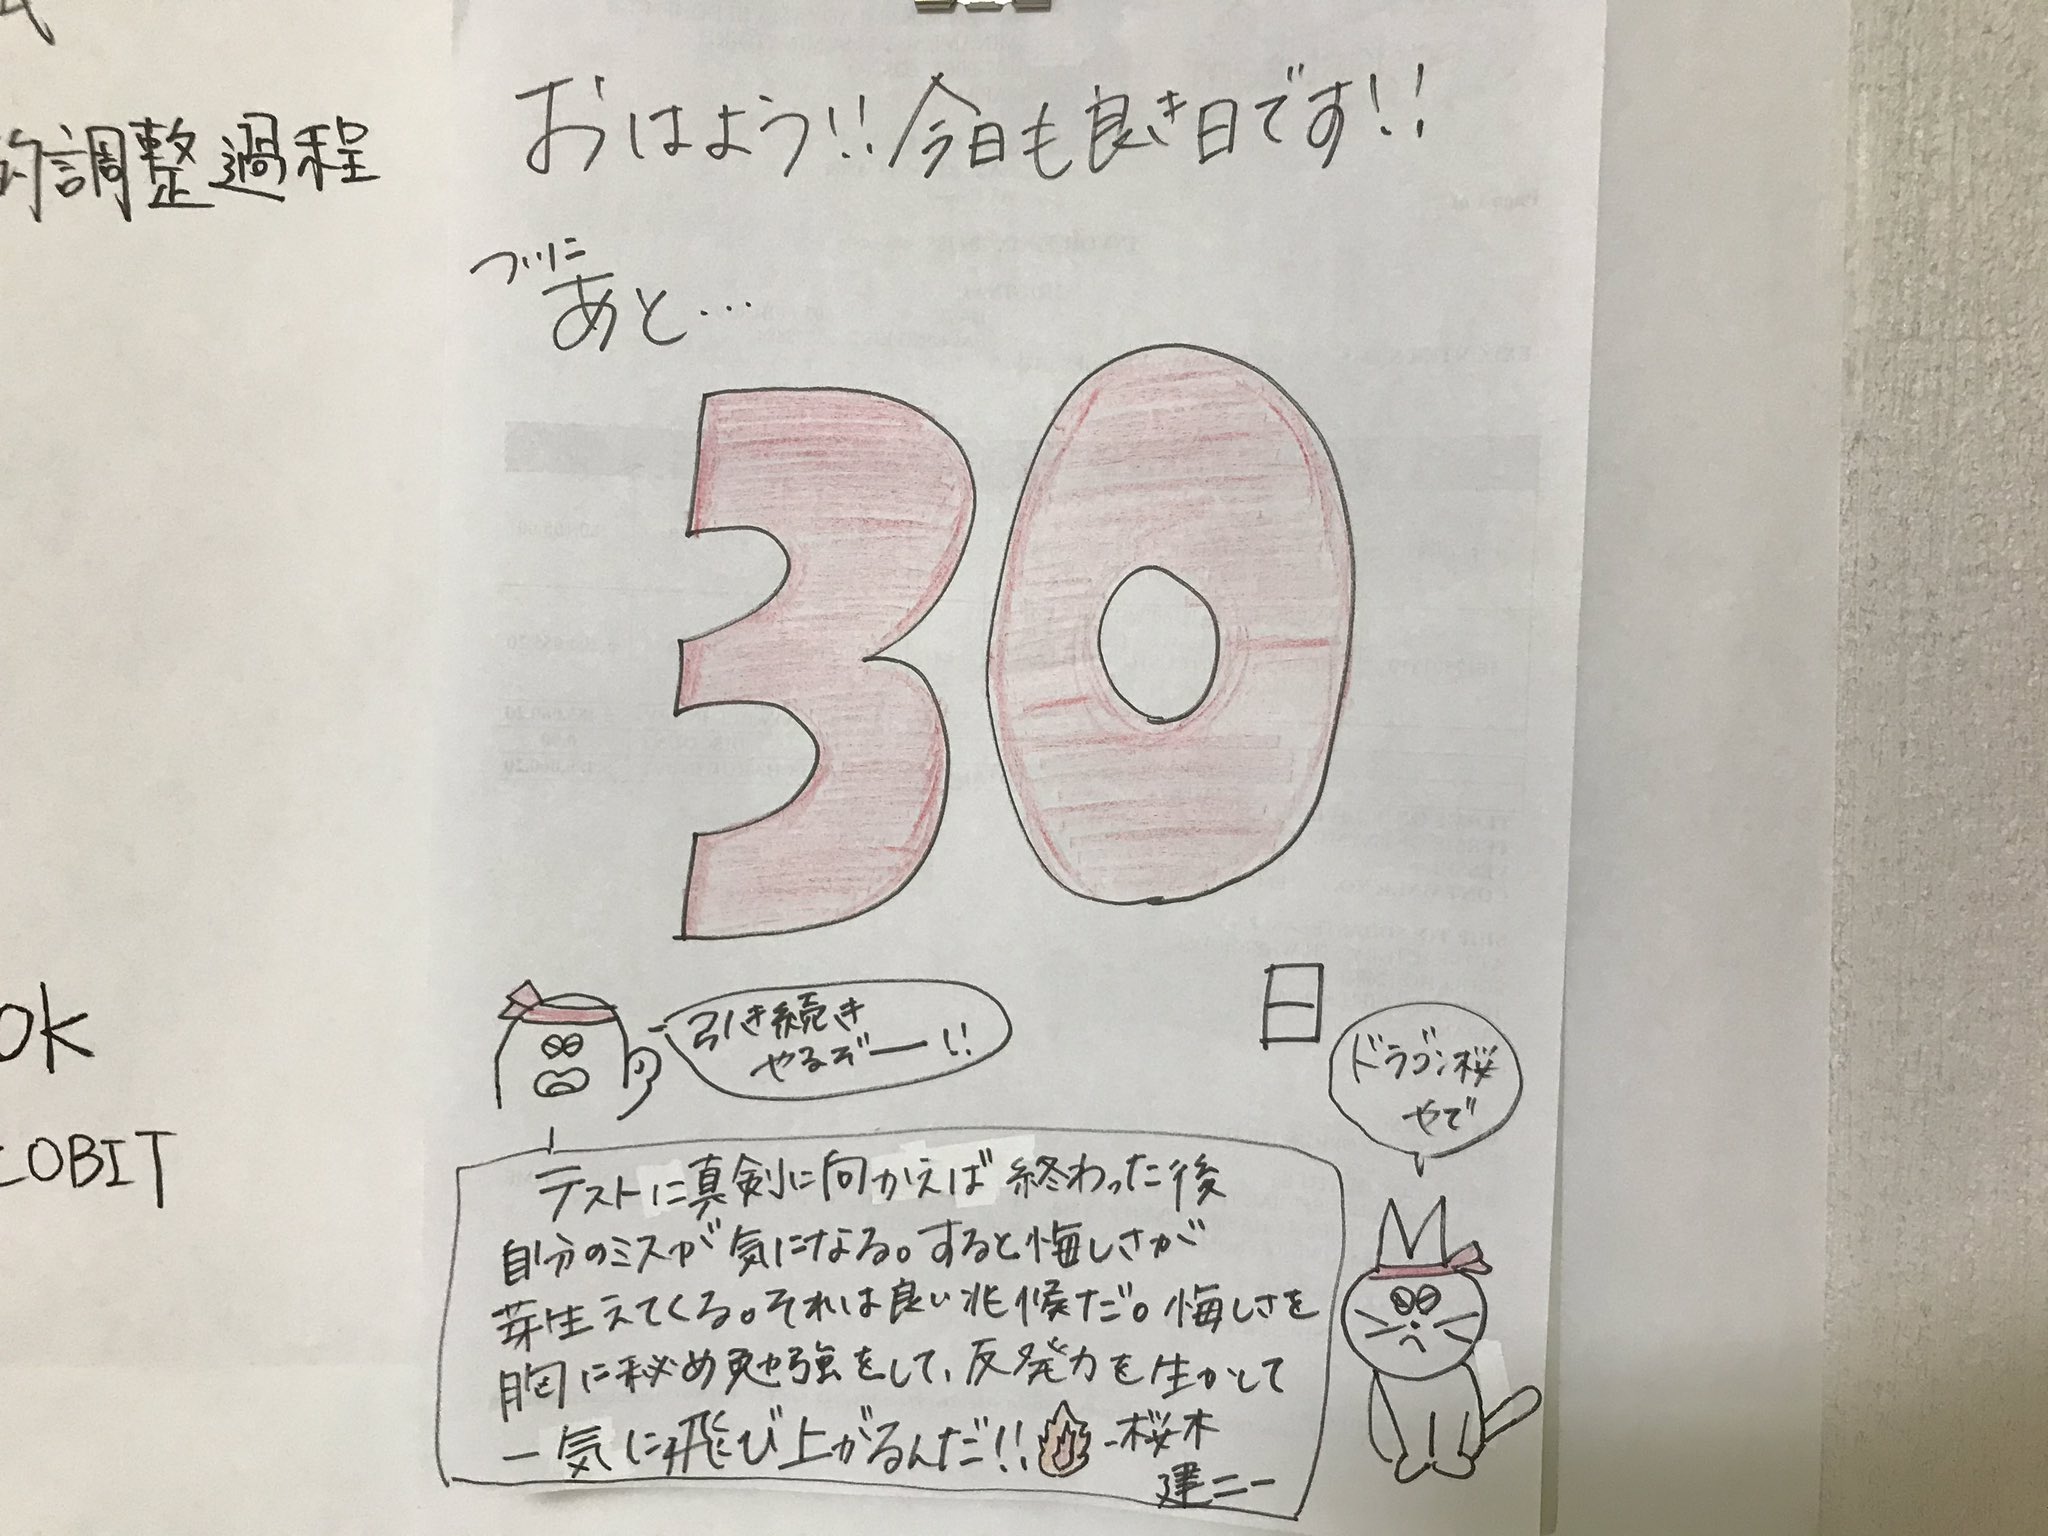 的調整過程
ok
COBIT
おはよう!! 今日も良き日です!!
ついに
あと…
30
日
引き続き
やるぞー!!
ドラゴン桜
やで
テストに真剣に向かえば 終わった後
自分のミスが気になる。すると悔しさが
芽生えてくる。それは良い兆候だ。悔しさを
胸に秘め勉強をして、反発力を生かして
一気に飛び上がるんだ!! -桜木
建二-